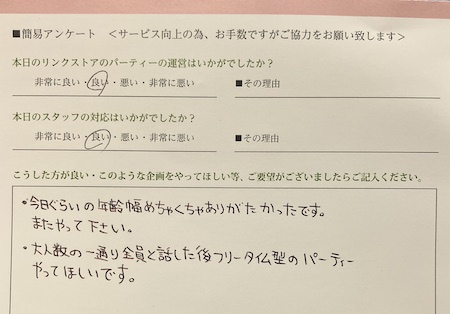 ■簡易アンケート ＜サービス向上の為、お手数ですがご協力をお願い致します＞
本日のリンクストアのパーティーの運営はいかがでしたか？
非常に良い・良い・悪い・非常に悪い ■その理由
本日のスタッフの対応はいかがでしたか？
非常に良い・良い・悪い・非常に悪い ■その理由
こうした方が良い・このような企画をやってほしい等、ご要望がございましたらご記入ください。
・今日ぐらいの年齢幅めちゃくちゃありがたかったです。
またやって下さい。
・大人数の一通り全員と話した後フリータイム型のパーティー
やってほしいです。